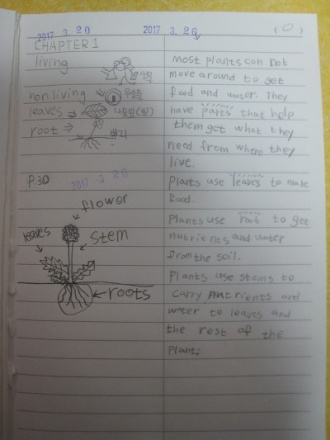 2017 3. 20
2017 3. 26
CHAPTER 1
living
non living
leaves→
root→
뿌리
P.30
2017 3. 26
flower
leaves
stem
roots
most plants can not
move around to get
food and water. They
have parts that help
them get what they
need from where they
live.
Plants use leaves to make
food.
Plants use root to get
nutrients and water
from the soil.
Plants use stems to
carry nutrients and
water to leaves and
the rest of the
plant.